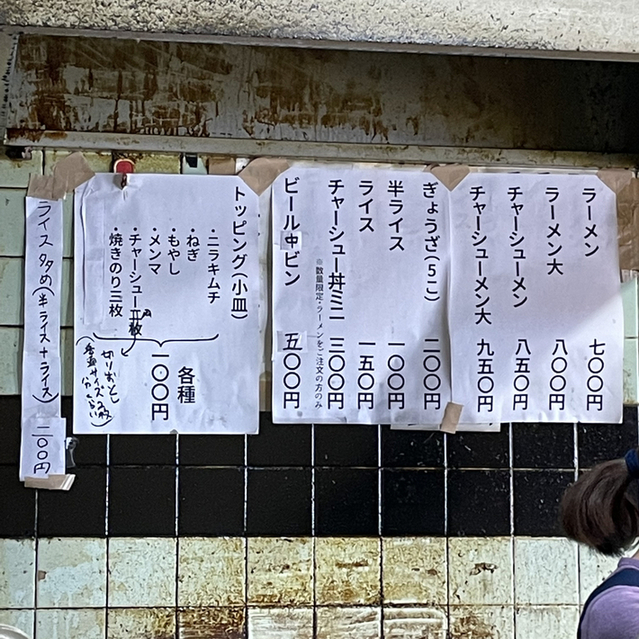 ラーメン 七〇〇円
ラーメン大 八〇〇円
チャーシューメン 八五〇円
チャーシューメン大 九五〇円
ぎょうざ(5こ) 二〇〇円
半ライス 一〇〇円
ライス 一五〇円
チャーシュー丼ミニ 三〇〇円
※数量限定・ラーメンをご注文の方のみ
ビール中ビン 五〇〇円
トッピング(小皿)
・ニラキムチ
・ねぎ
・もやし
・メンマ
・チャーシュー二枚
・焼きのり三枚
各種
一〇〇円
切りおとし
ライス多め(半ライス+ライス) 二〇〇円